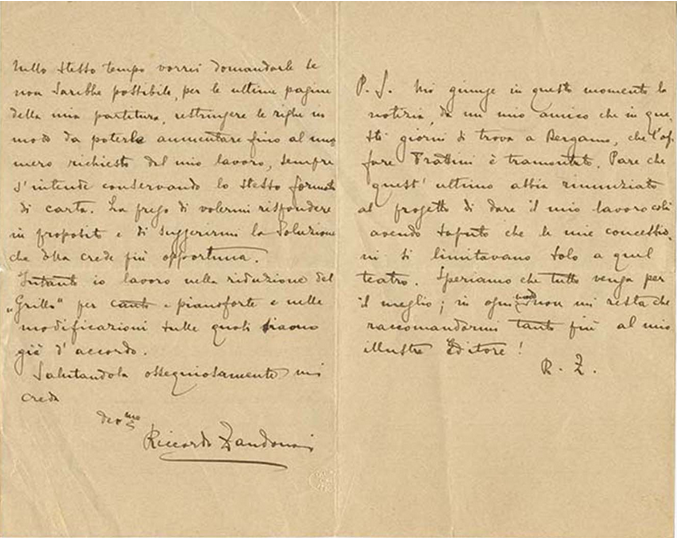 nello stesso tempo vorrei domandarle se
non sarebbe possibile, per le ultime pagine
della mia partitura, restringere le righe in
modo da poterle aumentare fino al nu
mero richiesto dal mio lavoro, sempre
s'intende conservando lo stesso formato
di carta. La prego di volermi rispondere
in proposito e di suggerirmi la soluzione
che Ella crede più opportuna.
Intanto io lavoro nella riduzione del
„Grillo" per canto e pianoforte e nelle
modificazioni sulle quali siamo
già d'accordo.
Salutandola ossequiosamente mi
creda
dev.mo
Riccardo Zandonai
P. S. Mi giunge in questo momento la
notizia, da un mio amico che in que
sti giorni si trova a Bergamo, che l'af
fare Trabini è tramontato. Pare che
quest'ultimo abbia rinunziato
al progetto di dare il mio lavoro colà
avendo saputo che le mie concessio
ni si limitavano solo a quel
teatro. Speriamo che tutto venga per
il meglio; in ogni modo non mi resta che
raccomandarmi tanto più al mio
illustre Editore!
R. Z.